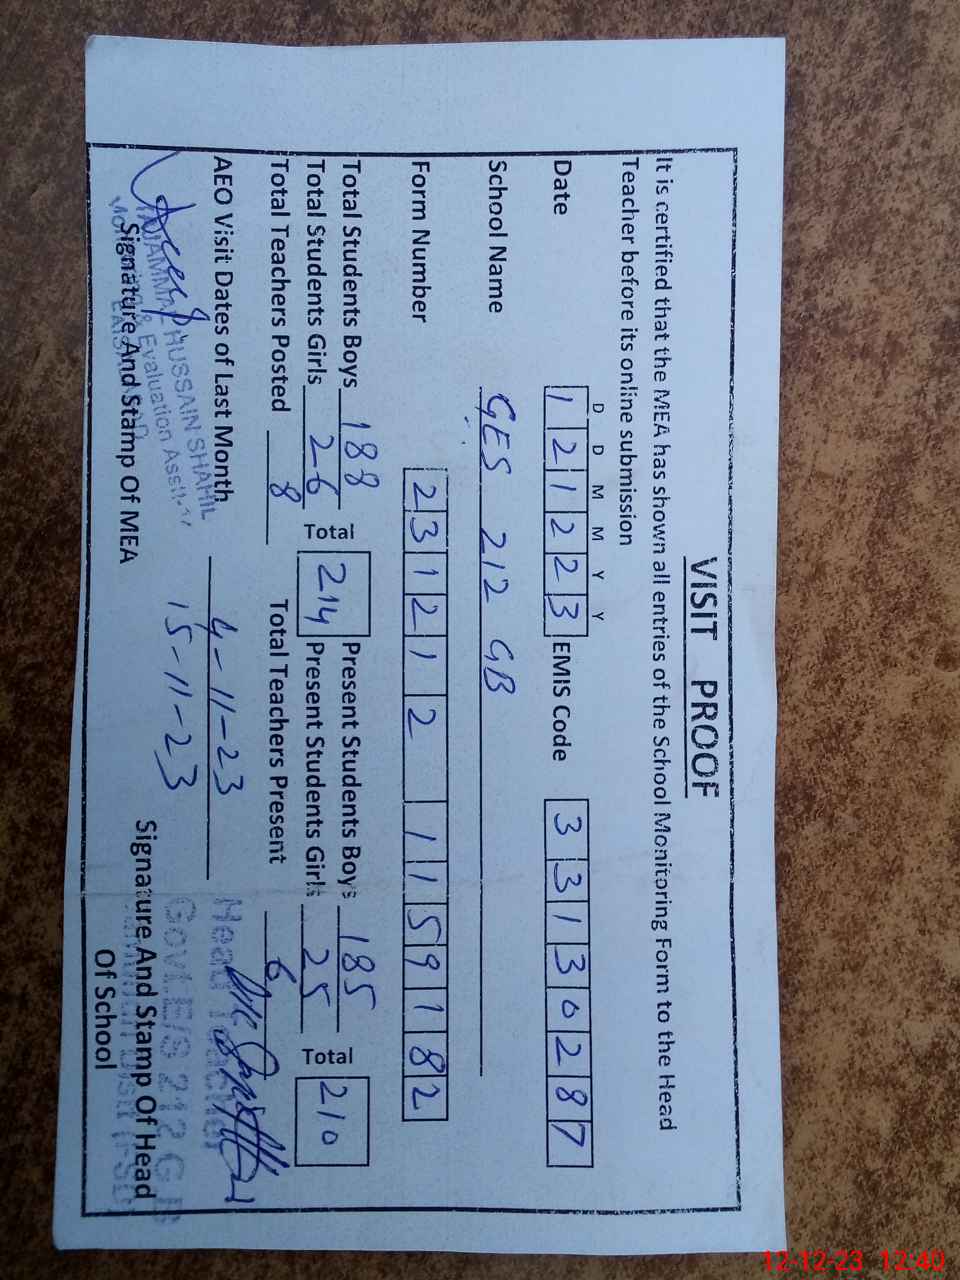 VISIT PROOF
It is certified that the MEA has shown all entries of the School Monitoring Form to the Head
Teacher before its online submission
D D M M Y Y
Date 1 2 1 2 2 3 EMIS Code 3 3 1 3 0 2 8 7
School Name GES 212 GB
Form Number 2 3 1 2 1 2 1 1 5 9 1 8 2
Total Students Boys 188 Total 214 Present Students Boys 185 Total 210
Total Students Girls 26 Present Students Girls 25
Total Teachers Posted 8 Total Teachers Present 6
AEO Visit Dates of Last Month 4-11-23
15-11-23
HUSSAIN SHAHIL
& Evaluation Asstt-
Head Teacher
Govt. E/S 212 G.B
Signature And Stamp Of MEA
Signature And Stamp Of Head
Of School
12-12-23 12:40